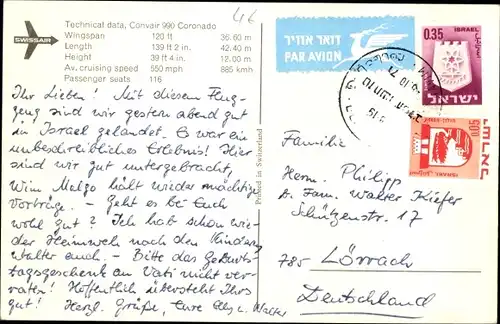 46
SWISSAIR
Technical data, Convair 990 Coronado
Wingspan 120 ft 36.60 m
Length 139 ft 2 in. 42.40 m
Height 39 ft 4 in. 12.00 m
Av. cruising speed 550 mph 885 km/h
Passenger seats 116
Ihr Lieben! Mit diesem Flug-
zeug sind wir gestern abend gut
in Israel gelandet. Es war ein
unbeschreibliches Erlebnis! Hier
sind wir gut untergebracht,
Wim Malgo hält wieder mächtige
Vorträge. – Geht es Euch
wohl gut? Ich hab schon wie-
der Heimweh nach den Kindern
Walter auch. – Bitte das Geburts-
tagsgeschenk an Vati nicht ver-
raten! Hoffentlich übersteht Ihrs
gut! Herzl. Grüße, Eure Elly u. Walter
Printed in Switzerland
דואר אוויר
PAR AVION
0.35
ISRAEL
ישראל
0.05
ISRAEL
ישראל
Familie
Herrn Philipp
b. Fam. Walter Kiefer
Schützenstr. 17
785 Lörrach
Deutschland